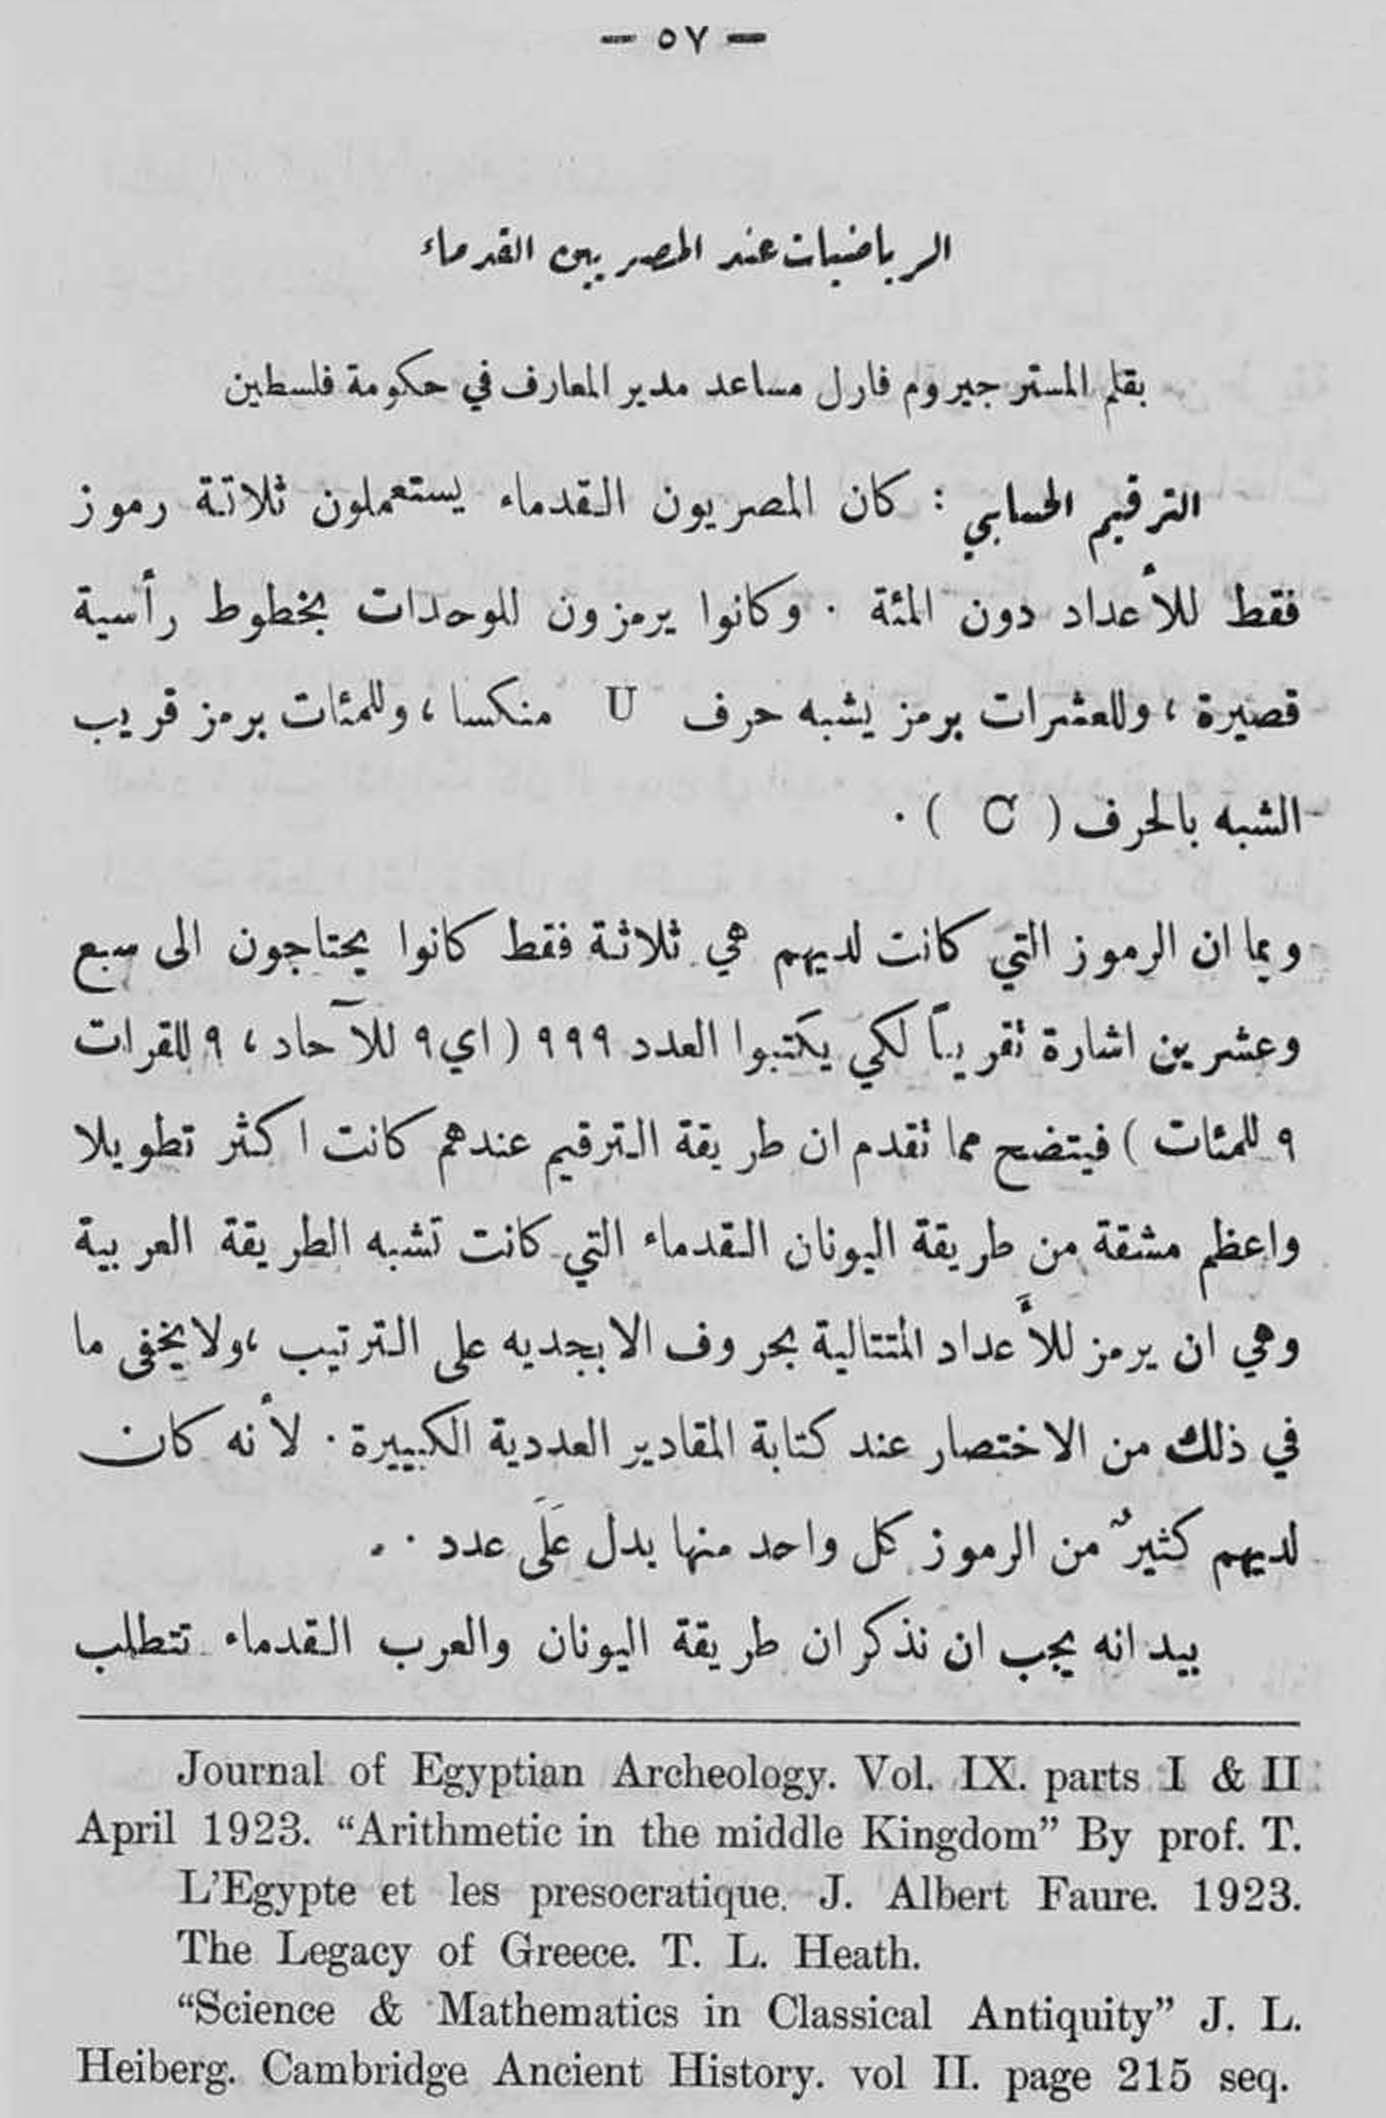 — ٥٧ —
الرياضيات عند المصريين القدماء
بقلم المستر جيروم فارل مساعد مدير المعارف في حكومة فلسطين
الترقيم الحسابي : كان المصريون القدماء يستعملون ثلاثة رموز
فقط للأعداد دون المئة . وكانوا يرمزون للوحدات بخطوط رأسية
قصيرة ، وللعشرات برمز يشبه حرف U منكسا ، وللمئات برمز قريب
الشبه بالحرف ( C ) .
وبما ان الرموز التي كانت لديهم هي ثلاثة فقط كانوا يحتاجون الى سبع
وعشرين اشارة تقريباً لكي يكتبوا العدد ٩٩٩ ( اي ٩ للآحاد ، ٩ للقرات
٩ للمئات ) فيتضح مما تقدم ان طريقة الترقيم عندهم كانت اكثر تطويلا
واعظم مشقة من طريقة اليونان القدماء التي كانت تشبه الطريقة العربية
وهي ان يرمز للأعداد المتتالية بحروف الابجديه على الترتيب ، ولا يخفى ما
في ذلك من الاختصار عند كتابة المقادير العددية الكبييرة . لأنه كان
لديهم كثيرٌ من الرموز كل واحد منها يدل عَلَى عدد . .
بيد انه يجب ان نذكر ان طريقة اليونان والعرب القدماء تتطلب
Journal of Egyptian Archeology. Vol. IX. parts I & II
April 1923. “Arithmetic in the middle Kingdom” By prof. T.
L’Egypte et les presocratique. J. Albert Faure. 1923.
The Legacy of Greece. T. L. Heath.
“Science & Mathematics in Classical Antiquity” J. L.
Heiberg. Cambridge Ancient History. vol II. page 215 seq.